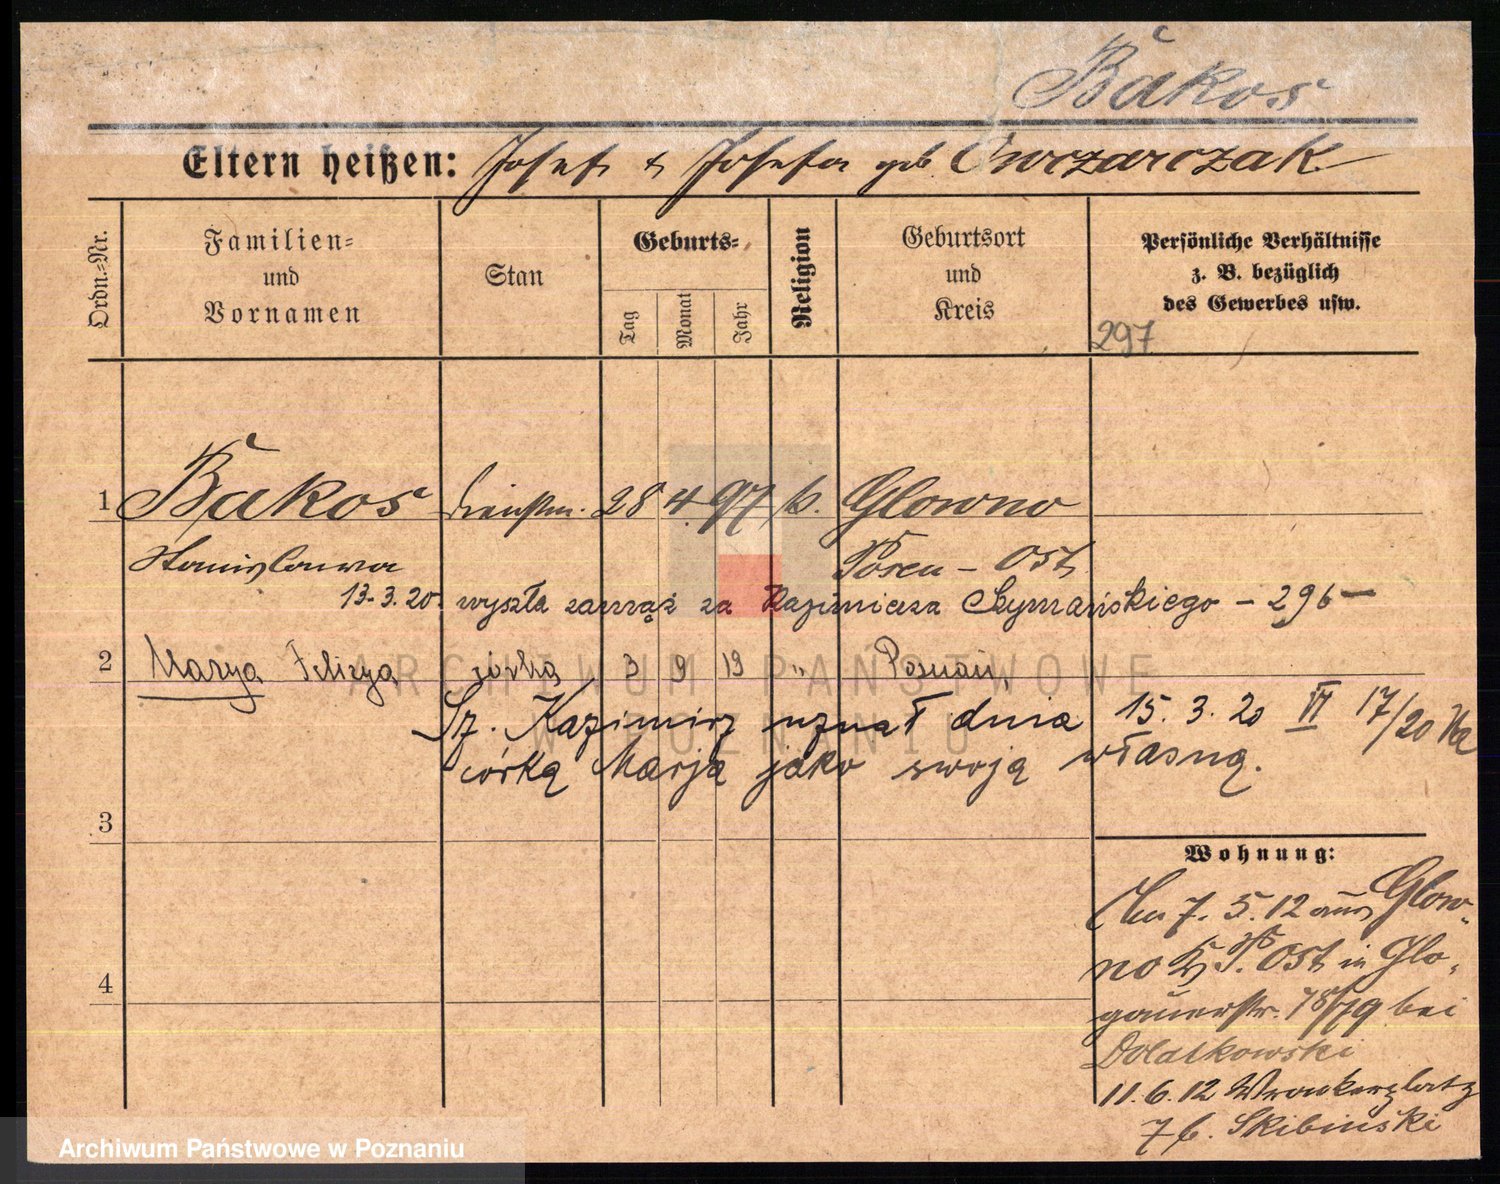 Bąkos
Eltern heißen: Josef & Josefa geb. Owczarczak
Ordn.-Nr.
Familien-
und
Vornamen
Stan
Geburts-
Tag
Monat
Jahr
Religion
Geburtsort
und
Kreis
Persönliche Verhältnisse
z. B. bezüglich
des Gewerbes usw.
297
1 Bąkos Dienstm. 28 4. 97 k. Glowno
Stanislawa Posen - Ost
13. 3. 20. wyszła zamąż za Kazimierza Szymańskiego - 296 -
2 Marya Felicya córka 3 9 19 " Poznań
Sz. Kazimierz uznał dnia 15. 3. 20 VI 17/20
córką Marją jako swoją własną.
3
Wohnung:
Am 7. 5. 12 aus Glow-
no P. Ost in Glo-
4
gauerstr. 78/79 bei
Dolatkowski
11. 6. 12 Wronkerplatz
7 b. Skibinski
ARCHIWUM PAŃSTWOWE
W POZNANIU
Archiwum Państwowe w Poznaniu